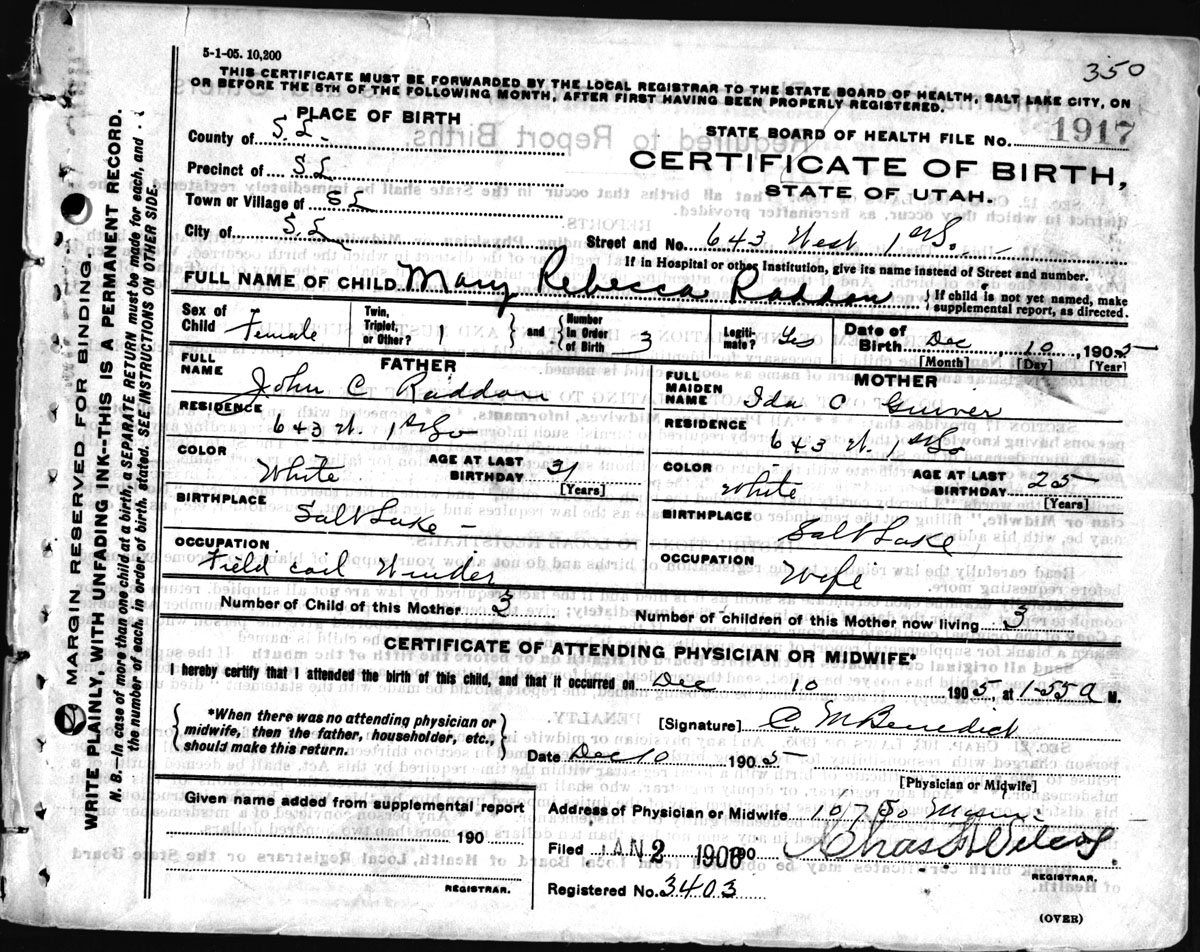 350
5-1-05. 10,200
THIS CERTIFICATE MUST BE FORWARDED BY THE LOCAL REGISTRAR TO THE STATE BOARD OF HEALTH, SALT LAKE CITY, ON
OR BEFORE THE 5TH OF THE FOLLOWING MONTH, AFTER FIRST HAVING BEEN PROPERLY REGISTERED.
PLACE OF BIRTH
County of S.L.
Precinct of SL
Town or Village of SL
City of S.L
STATE BOARD OF HEALTH FILE No. 1917
CERTIFICATE OF BIRTH,
STATE OF UTAH.
Street and No. 643 West 1st So.
If in Hospital or other Institution, give its name instead of Street and number.
FULL NAME OF CHILD Mary Rebecca Raddon { If child is not yet named, make supplemental report, as directed.
Sex of Child Female Twin, Triplet, or Other? 1 } and { Number in Order of Birth 3 Legitimate? Yes Date of Birth Dec, 10, 1905
[Month] [Day] [Year]
FATHER
FULL NAME John C Raddon
RESIDENCE 643 W. 1st So
COLOR White AGE AT LAST BIRTHDAY 31
[Years]
BIRTHPLACE Salt Lake -
OCCUPATION Field Coil Winder
MOTHER
FULL MAIDEN NAME Ida O Guiver
RESIDENCE 643 W. 1st So
COLOR White AGE AT LAST BIRTHDAY 25
[Years]
BIRTHPLACE Salt Lake
OCCUPATION Wife
Number of Child of this Mother 3 Number of children of this Mother now living 3
CERTIFICATE OF ATTENDING PHYSICIAN OR MIDWIFE.*
I hereby certify that I attended the birth of this child, and that it occurred on Dec 10 1905 at 1-55 a M.
{ *When there was no attending physician or midwife, then the father, householder, etc., should make this return. }
[Signature] C. M Benedict
Date Dec 10 1905
[Physician or Midwife]
Given name added from supplemental report
190
REGISTRAR.
Address of Physician or Midwife
Filed JAN 2 1906 190 Chas Wilcox
REGISTRAR.
Registered No. 3403
(OVER)
MARGIN RESERVED FOR BINDING.
WRITE PLAINLY, WITH UNFADING INK--THIS IS A PERMANENT RECORD.
N. B.--In case of more than one child at a birth, a SEPARATE RETURN must be made for each, and
the number of each, in order of birth, stated. SEE INSTRUCTIONS ON OTHER SIDE.